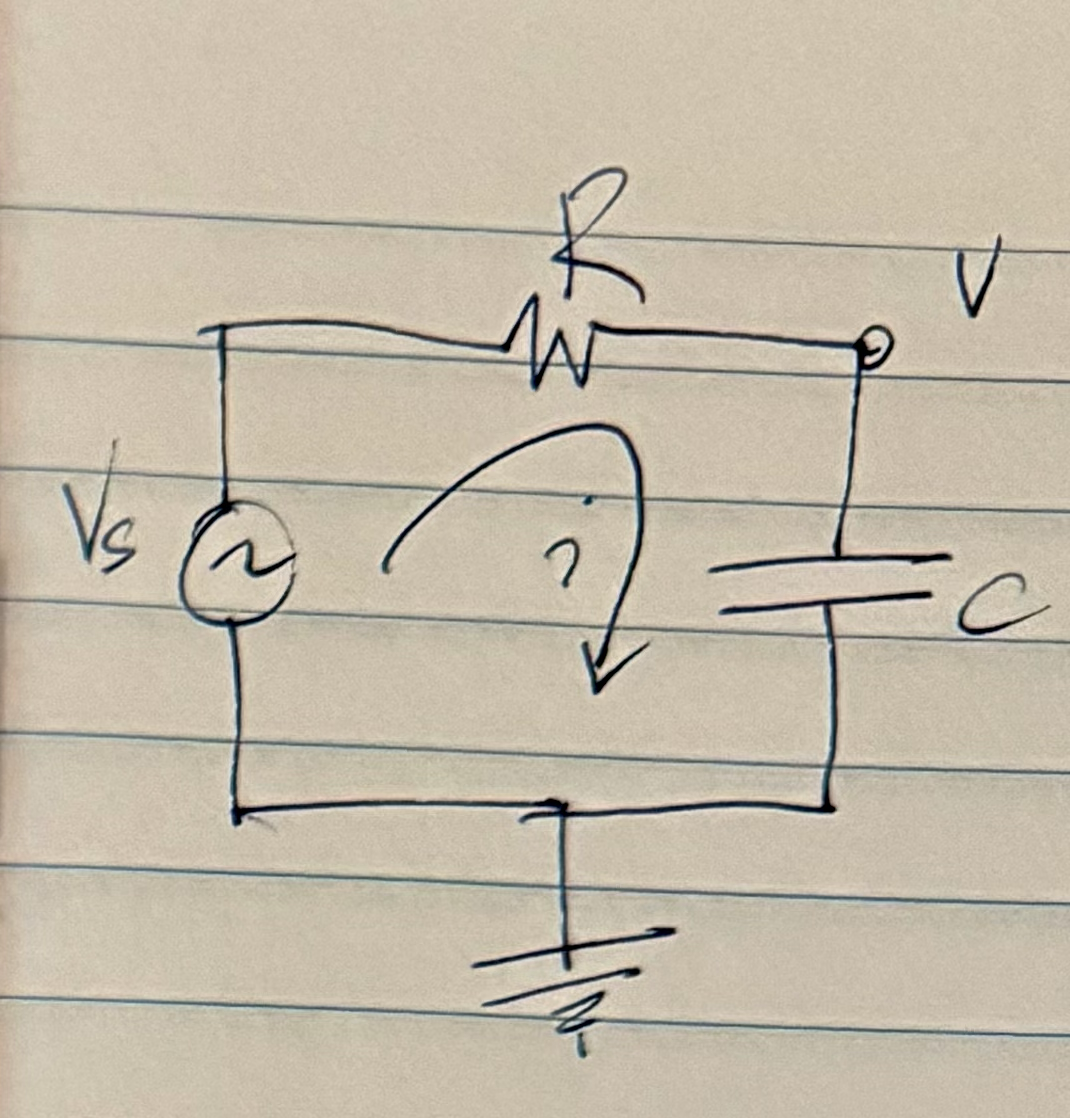 R
V
Vs
i
C